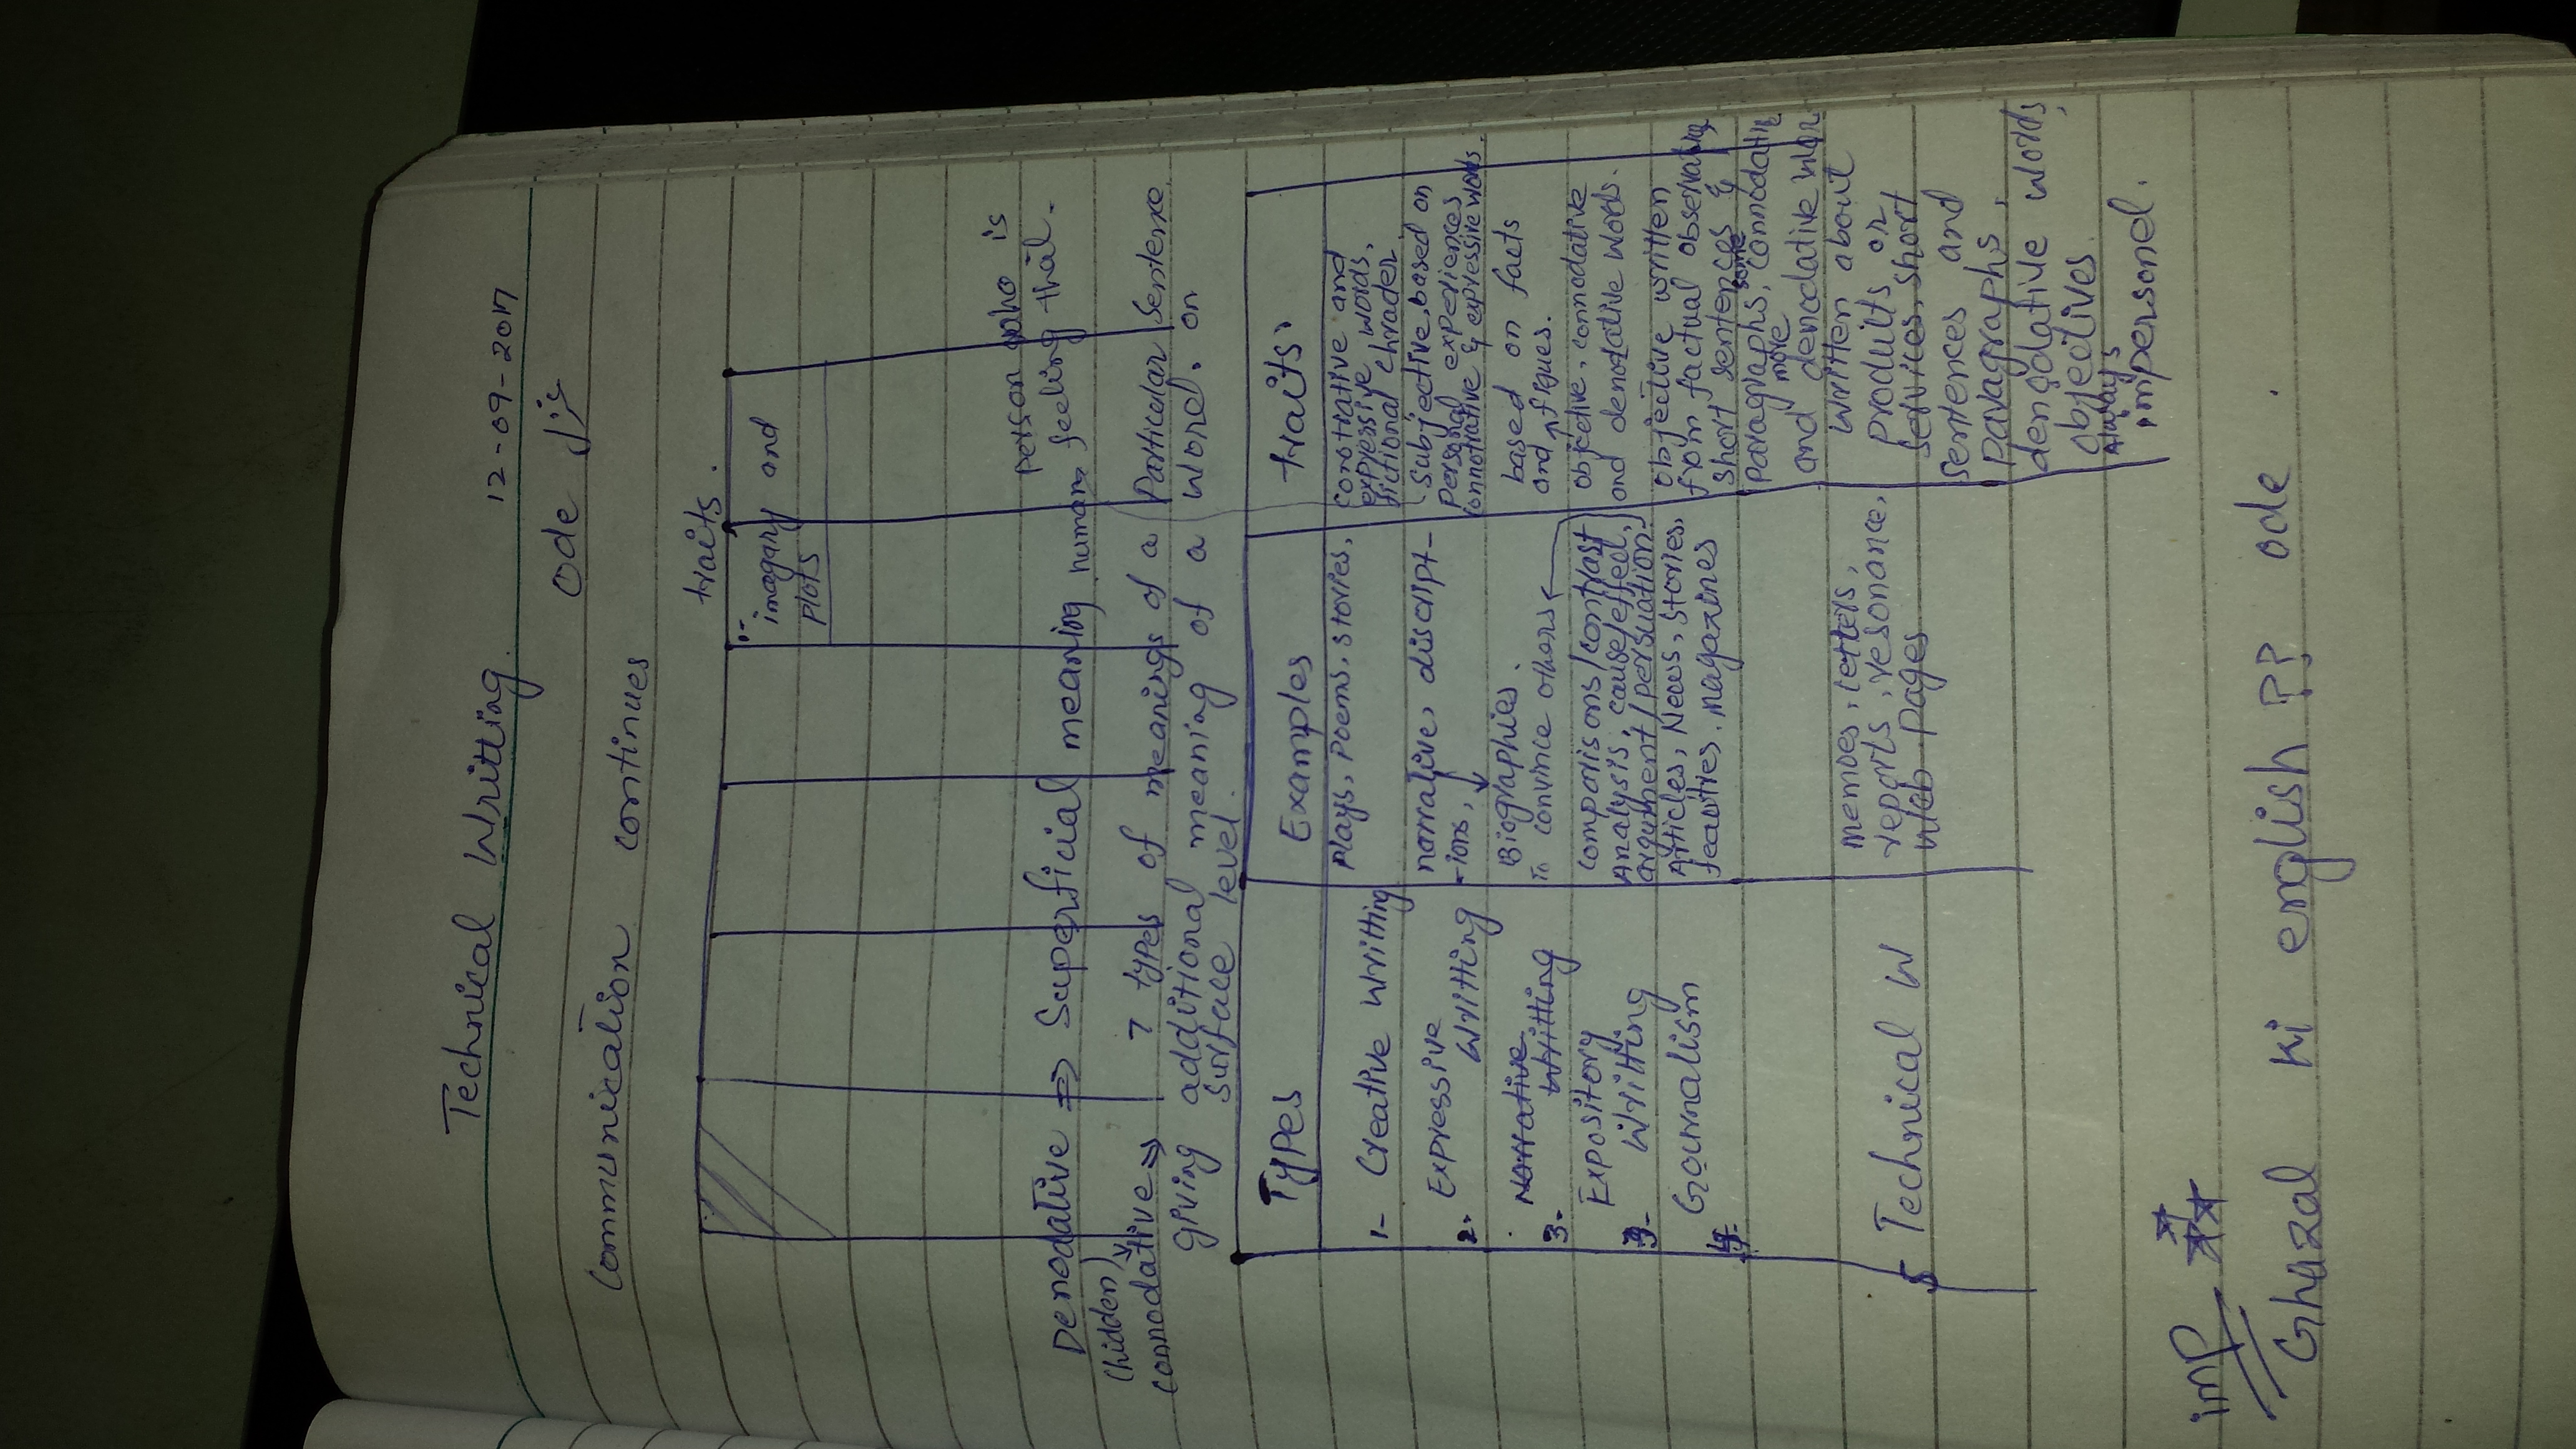 Technical Writting. 12-09-2017
Ode j's
Communication continues
traits.
1- imagary and
plots
person who is
Denodative ⇒ Superficial meaning human feeling that.
(hidden)
connodative ⇒ 7 types of meanings of a Particular sentence.
giving additional meaning of a word. on
surface level.
Types Examples traits.
1- Creative writting
Plays, Poems, stories,
Constrative and
expressive words,
fictional chracter
2. Expressive
writting
narrative, discript-
-ions,
Biographies.
(Subjective, based on
personal experiences
connotative & expressive words.
3. Narrative
writting
To convince others
based on facts
and figues.
3- Expository
writting
Comparisons/contrast
Analysis, cause/effect,
argument/persuation.
objective, connodative
and denotative words.
4- Gournalism
Articles, News, stories,
feauties. magazines
objective written
from factual observation
short sentences &
paragraphs, some connodative
more
and denodative wor
5 Technical W
memoes, letters,
reports, resonance,
web pages
written about
products or
services, short
sentences and
paragraphs,
denodative words,
objectives.
Always
impersonel.
imp ***
Ghazal ki english ?? ode.